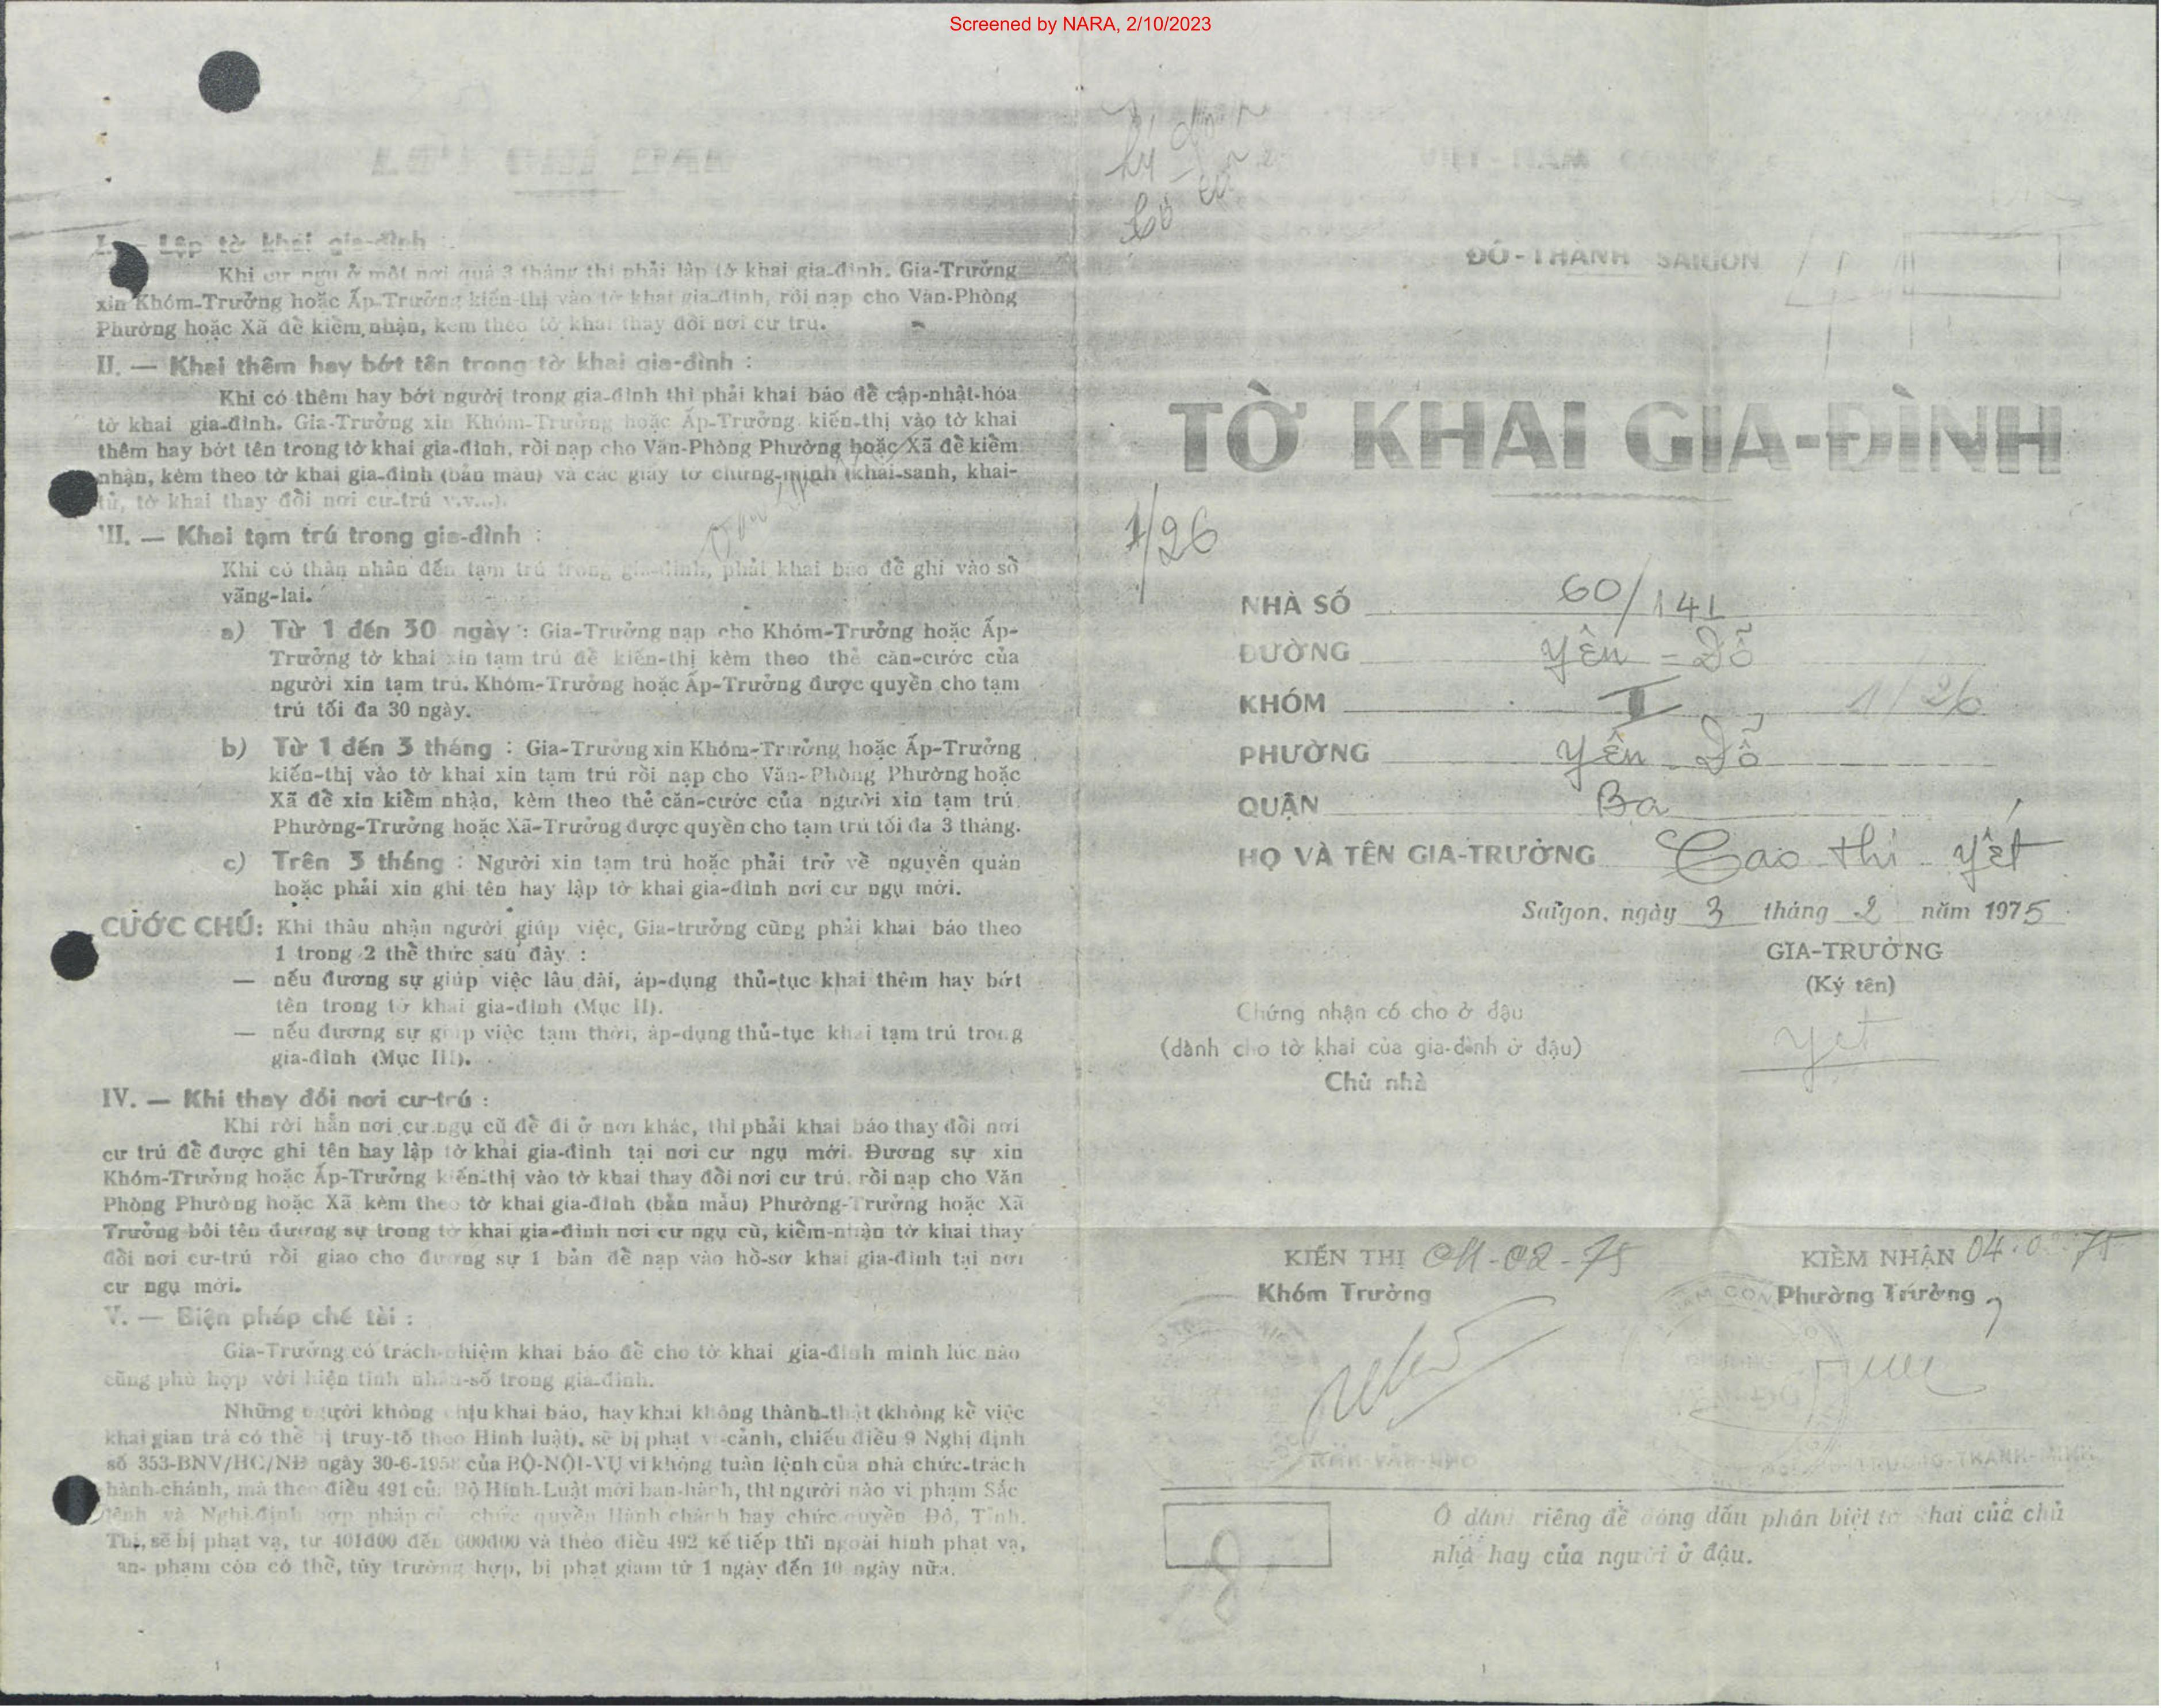 Screened by NARA, 2/10/2023
I. — Lập tờ khai gia-đình :
Khi cư ngụ ở một nơi quá 3 tháng thì phải lập tờ khai gia-đình. Gia-Trưởng
xin Khóm-Trưởng hoặc Ấp-Trưởng kiến-thị vào tờ khai gia-đình, rồi nạp cho Văn-Phòng
Phường hoặc Xã để kiểm nhận, kèm theo tờ khai thay đổi nơi cư trú.
II. — Khai thêm hay bớt tên trong tờ khai gia-đình :
Khi có thêm hay bớt người trong gia-đình thì phải khai báo để cập-nhật-hóa
tờ khai gia-đình. Gia-Trưởng xin Khóm-Trưởng hoặc Ấp-Trưởng kiến-thị vào tờ khai
thêm hay bớt tên trong tờ khai gia-đình, rồi nạp cho Văn-Phòng Phường hoặc Xã để kiểm
nhận, kèm theo tờ khai gia-đình (bản mẫu) và các giấy tờ chứng-minh (khai-sanh, khai-
tử, tờ khai thay đổi nơi cư-trú v.v...).
III. — Khai tạm trú trong gia-đình :
Khi có thân nhân đến tạm trú trong gia-đình, phải khai báo để ghi vào sổ
vãng-lai.
a) Từ 1 đến 30 ngày : Gia-Trưởng nạp cho Khóm-Trưởng hoặc Ấp-
Trưởng tờ khai xin tạm trú để kiến-thị kèm theo thẻ căn-cước của
người xin tạm trú. Khóm-Trưởng hoặc Ấp-Trưởng được quyền cho tạm
trú tối đa 30 ngày.
b) Từ 1 đến 3 tháng : Gia-Trưởng xin Khóm-Trưởng hoặc Ấp-Trưởng
kiến-thị vào tờ khai xin tạm trú rồi nạp cho Văn-Phòng Phường hoặc
Xã để xin kiểm nhận, kèm theo thẻ căn-cước của người xin tạm trú.
Phường-Trưởng hoặc Xã-Trưởng được quyền cho tạm trú tối đa 3 tháng.
c) Trên 3 tháng : Người xin tạm trú hoặc phải trở về nguyên quán
hoặc phải xin ghi tên hay lập tờ khai gia-đình nơi cư ngụ mới.
CƯỚC CHÚ: Khi thâu nhận người giúp việc, Gia-trưởng cũng phải khai báo theo
1 trong 2 thể thức sau đây :
— nếu đương sự giúp việc lâu dài, áp-dụng thủ-tục khai thêm hay bớt
tên trong tờ khai gia-đình (Mục II).
— nếu đương sự giúp việc tạm thời, áp-dụng thủ-tục khai tạm trú trong
gia-đình (Mục III).
IV. — Khi thay đổi nơi cư-trú :
Khi rời hẳn nơi cư ngụ cũ để đi ở nơi khác, thì phải khai báo thay đổi nơi
cư trú để được ghi tên hay lập tờ khai gia-đình tại nơi cư ngụ mới. Đương sự xin
Khóm-Trưởng hoặc Ấp-Trưởng kiến-thị vào tờ khai thay đổi nơi cư trú, rồi nạp cho Văn
Phòng Phường hoặc Xã kèm theo tờ khai gia-đình (bản mẫu) Phường-Trưởng hoặc Xã
Trưởng bôi tên đương sự trong tờ khai gia-đình nơi cư ngụ cũ, kiểm-nhận tờ khai thay
đổi nơi cư-trú rồi giao cho đương sự 1 bản để nạp vào hồ-sơ khai gia-đình tại nơi
cư ngụ mới.
V. — Biện pháp chế tài :
Gia-Trưởng có trách-nhiệm khai báo để cho tờ khai gia-đình mình lúc nào
cũng phù hợp với hiện tình nhân-số trong gia-đình.
Những người không chịu khai báo, hay khai không thành-thật (không kể việc
khai gian trá có thể bị truy-tố theo Hình luật), sẽ bị phạt vi-cảnh, chiếu điều 9 Nghị định
số 353-BNV/HC/NĐ ngày 30-6-195 của BỘ-NỘI-VỤ vì không tuân lệnh của nhà chức-trách
hành-chánh, mà theo điều 491 của Bộ Hình-Luật mới ban-hành, thì người nào vi phạm Sắc
lệnh và Nghị-định hợp pháp của chức quyền Hành chánh hay chức quyền Đô, Tỉnh,
Thị, sẽ bị phạt vạ, từ 401đ00 đến 600đ00 và theo điều 492 kế tiếp thì ngoài hình phạt vạ,
can- phạm còn có thể, tùy trường hợp, bị phạt giam từ 1 ngày đến 10 ngày nữa.
VIỆT-NAM CỘNG
ĐÔ-THÀNH SAIGON
TỜ KHAI GIA-ĐÌNH
1/26
NHÀ SỐ 60/141
ĐƯỜNG Yên-Đỗ
KHÓM I 1/26
PHƯỜNG Yên-Đỗ
QUẬN Ba
HỌ VÀ TÊN GIA-TRƯỞNG Cao thị Yết
Saigon, ngày 3 tháng 2 năm 1975
GIA-TRƯỞNG
(Ký tên)
Yet
Chứng nhận có cho ở đậu
(dành cho tờ khai của gia-đình ở đậu)
Chủ nhà
KIẾN THỊ 04-02-75
Khóm Trưởng
KIỂM NHẬN 04-0 75
Phường Trưởng
Ô dành riêng để đóng dấu phân biệt tờ khai của chủ
nhà hay của người ở đậu.